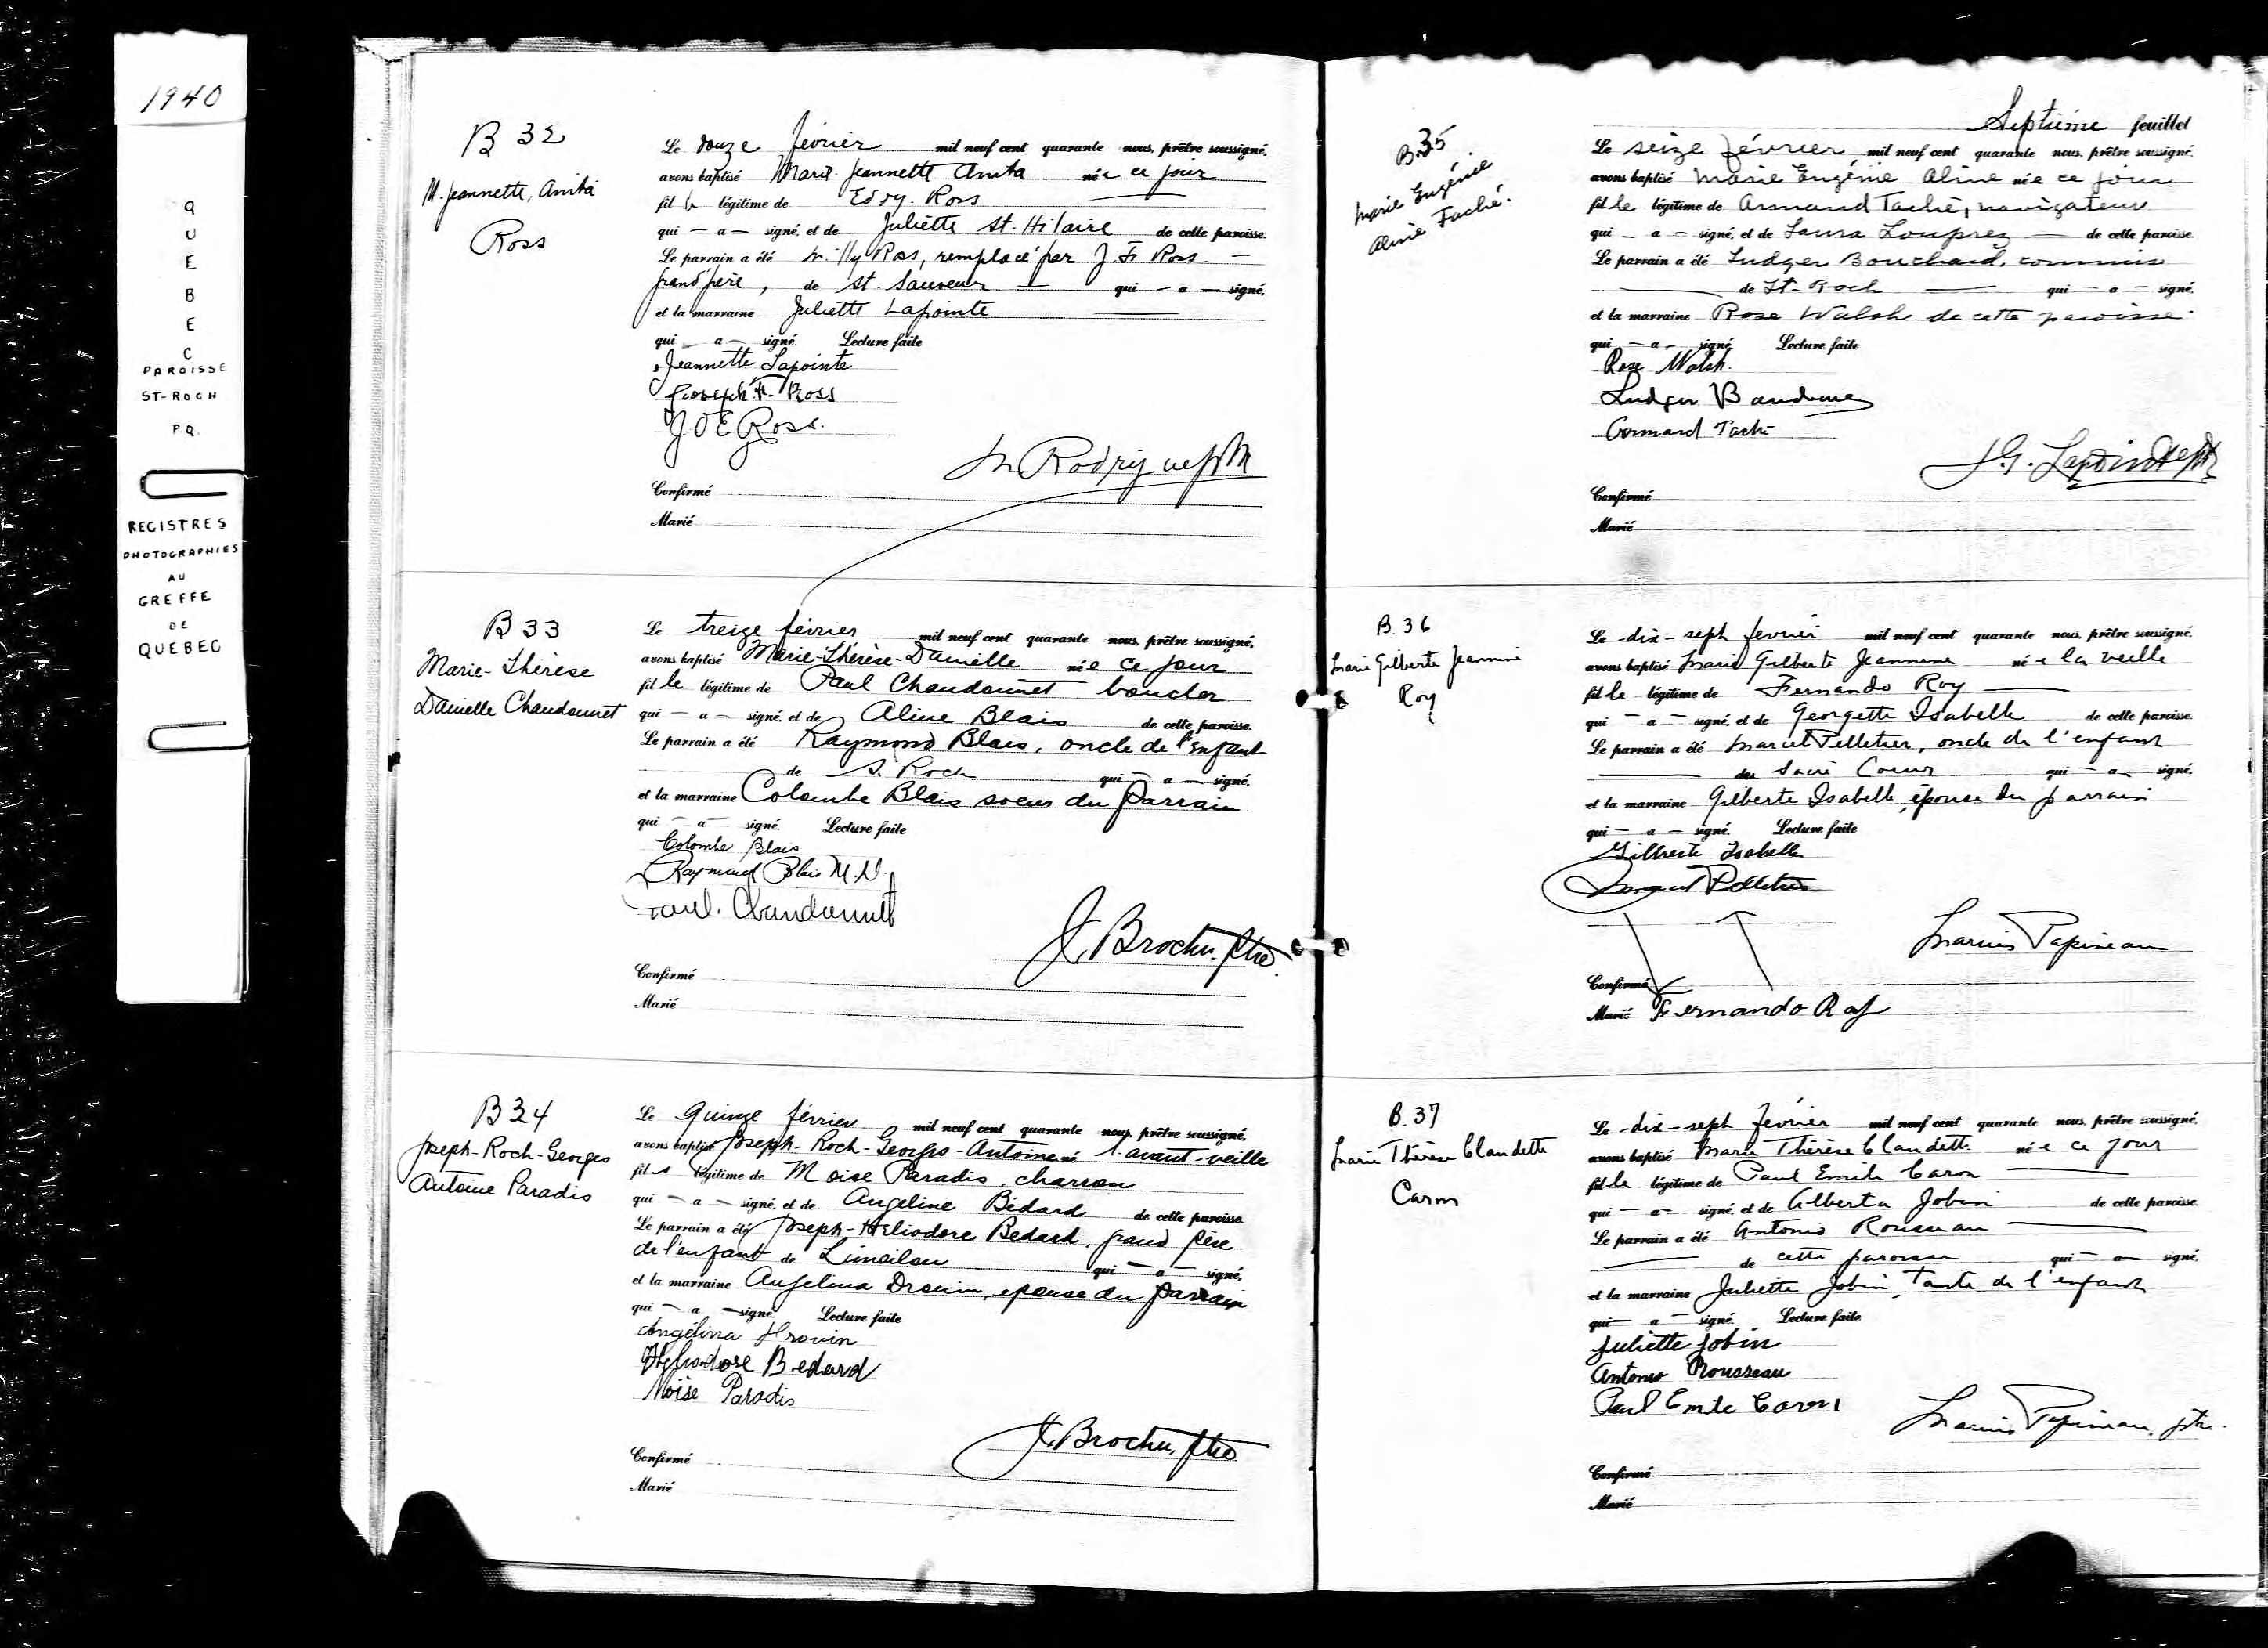 1940
QUEBEC
PAROISSE
ST-ROCH
P.Q.
REGISTRES
PHOTOGRAPHIES
AU
GREFFE
DE
QUEBEC
B 32
M. Jeannette, Anita
Ross
Le douze février mil neuf cent quarante nous, prêtre soussigné,
avons baptisé Marie Jeannette Anita née ce jour
fille légitime de Eddy Ross
qui – a – signé, et de Juliette St-Hilaire de cette paroisse.
Le parrain a été Willy Ross, remplacé par J. F. Ross. –
grand'père, de St. Sauveur qui – a – signé,
et la marraine Juliette Lapointe
qui – a – signé. Lecture faite
Jeannette Lapointe
Joseph F. Ross
JOE Ross.
Rodrigue
Confirmé
Marié
B 33
Marie-Thérèse
Danielle Chandonnet
Le treize février mil neuf cent quarante nous, prêtre soussigné,
avons baptisé Marie-Thérèse-Danielle née ce jour
fille légitime de Paul Chandonnet boucher
qui – a – signé, et de Aline Blais de cette paroisse.
Le parrain a été Raymond Blais, oncle de l'enfant
de S. Roch qui – a – signé,
et la marraine Colombe Blais soeur du parrain
qui – a – signé. Lecture faite
Colombe Blais
Raymond Blais M.D.
Paul. Chandonnet
J. Brochu. ptre.
Confirmé
Marié
B 34
Joseph-Roch-Georges
Antoine Paradis
Le quinze février mil neuf cent quarante nous, prêtre soussigné,
avons baptisé Joseph-Roch-Georges-Antoine né l'avant-veille
fils légitime de Moise Paradis, charron
qui – a – signé, et de Angeline Bédard de cette paroisse.
Le parrain a été Joseph-Héliodore Bedard, grand père
de l'enfant de Limoilou qui – a – signé,
et la marraine Angelina Drouin, epouse du parrain
qui – a – signé. Lecture faite
Angélina Drouin
Héliodore Bedard
Moïse Paradis
J. Brochu, ptre
Confirmé
Marié
Septième feuillet
B.35
Marie Eugénie
Aline Taché.
Le seize février mil neuf cent quarante nous, prêtre soussigné,
avons baptisé Marie Eugénie Aline née ce jour
fille légitime de Armand Taché, navigateur
qui – a – signé, et de Laura Louprez de cette paroisse.
Le parrain a été Ludger Bouchard, commis
de St-Roch qui – a – signé,
et la marraine Rose Walsh de cette paroisse.
qui – a – signé. Lecture faite
Rose Walsh.
Ludger
Armand Taché
J.G. Lapointe ptre
Confirmé
Marié
B.36
Marie Gilberte Jeannine
Roy
Le dix-sept février mil neuf cent quarante nous, prêtre soussigné,
avons baptisé Marie Gilberte Jeannine née la veille
fille légitime de Fernando Roy
qui – a – signé, et de Georgette Isabelle de cette paroisse.
Le parrain a été Marcel Pelletier, oncle de l'enfant
du Sacré Coeur qui – a – signé,
et la marraine Gilberte Isabelle, épouse du parrain
qui – a – signé. Lecture faite
Gilberte Isabelle
Marcel Pelletier
Papineau
Confirmé
Marié Fernando Roy
B.37
Marie Thérèse Claudette
Caron
Le dix-sept février mil neuf cent quarante nous, prêtre soussigné,
avons baptisé Marie Thérèse Claudette née ce jour
fille légitime de Paul Emile Caron
qui – a – signé, et de Alberta Jobin de cette paroisse.
Le parrain a été Antonio Rousseau
de cette paroisse qui – a – signé,
et la marraine Juliette Jobin, tante de l'enfant
qui – a – signé. Lecture faite
Juliette Jobin
Antonio Rousseau
Paul Emile Caron
Papineau, ptre.
Confirmé
Marié